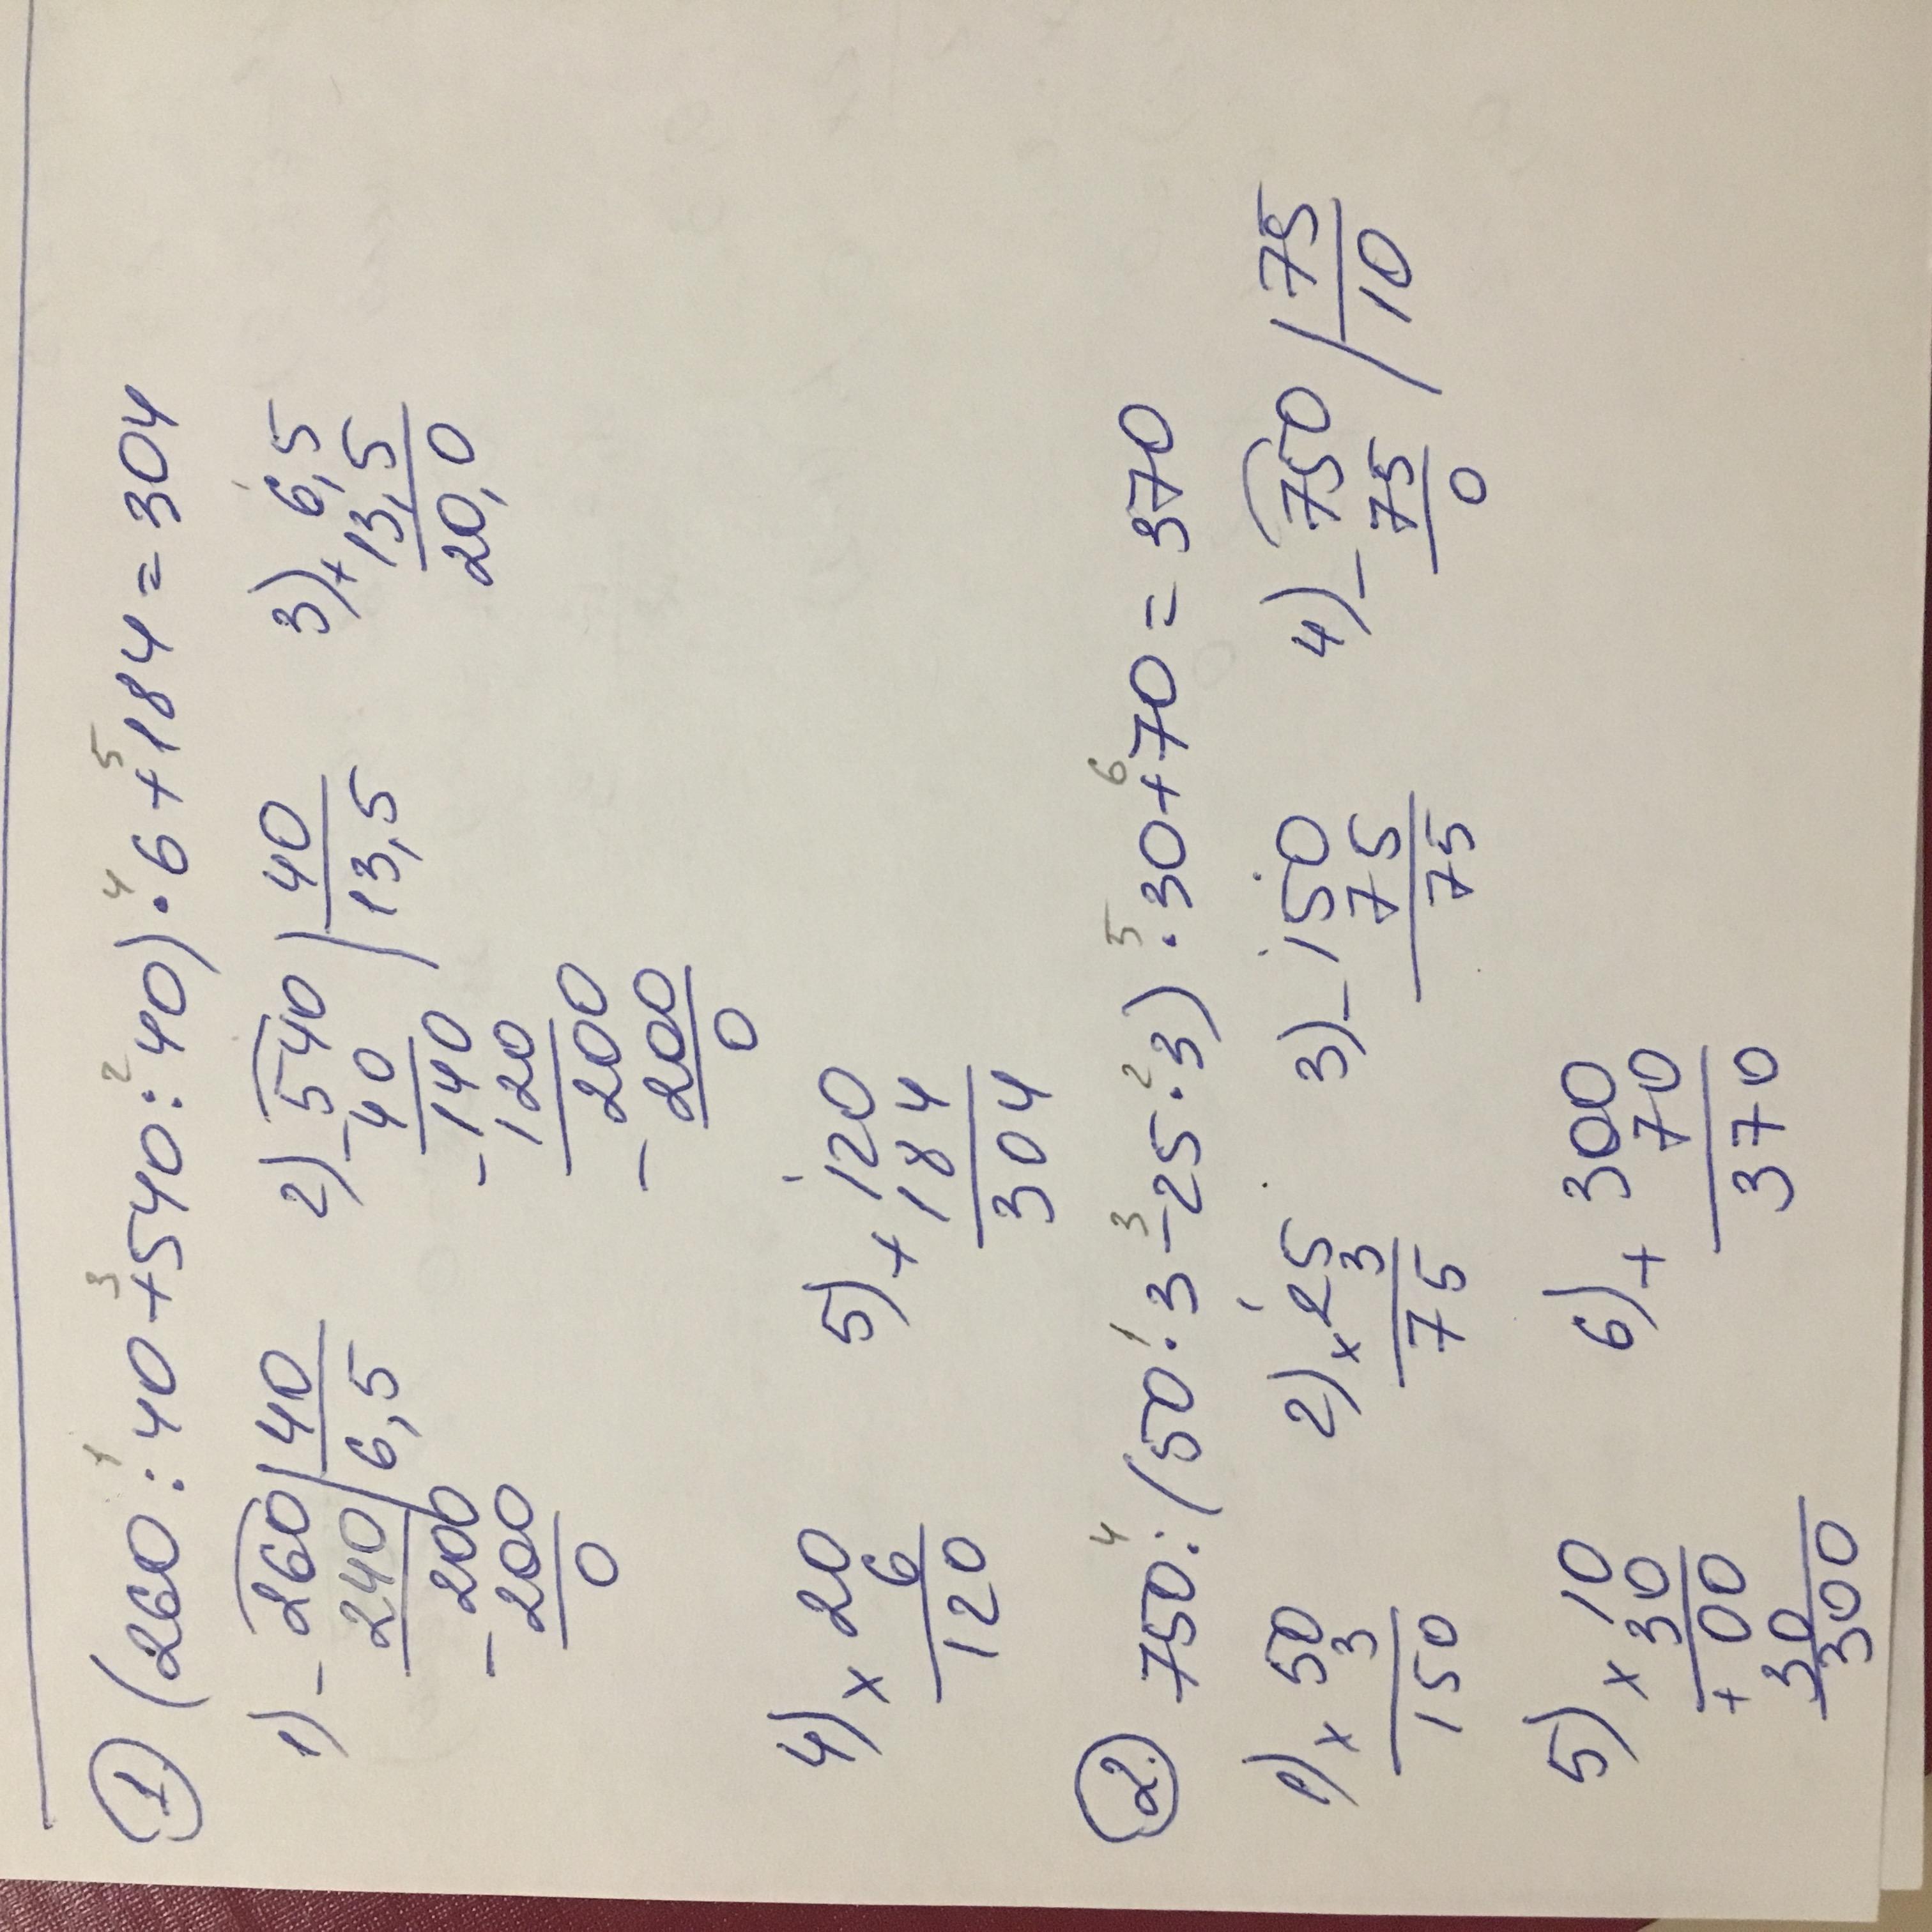 ① (260 : 40 + 540 : 40) · 6 + 184 = 304
1 3 2 4 5
1) - 260 | 40 2) - 540 | 40 3) + 6,5
240 | 6,5 40 | 13,5 13,5
- 200 - 140 20,0
200 120
0 - 200
200
0
4) x 20 5) + 120
6 184
120 304
② 750 : (50 · 3 - 25 · 3) · 30 + 70 = 370
4 1 3 2 5 6
1) x 50 2) x 25 3) - 150 4) - 750 | 75
3 3 75 75 | 10
150 75 75 0
5) x 10 6) + 300
30 70
+ 00 370
30
300